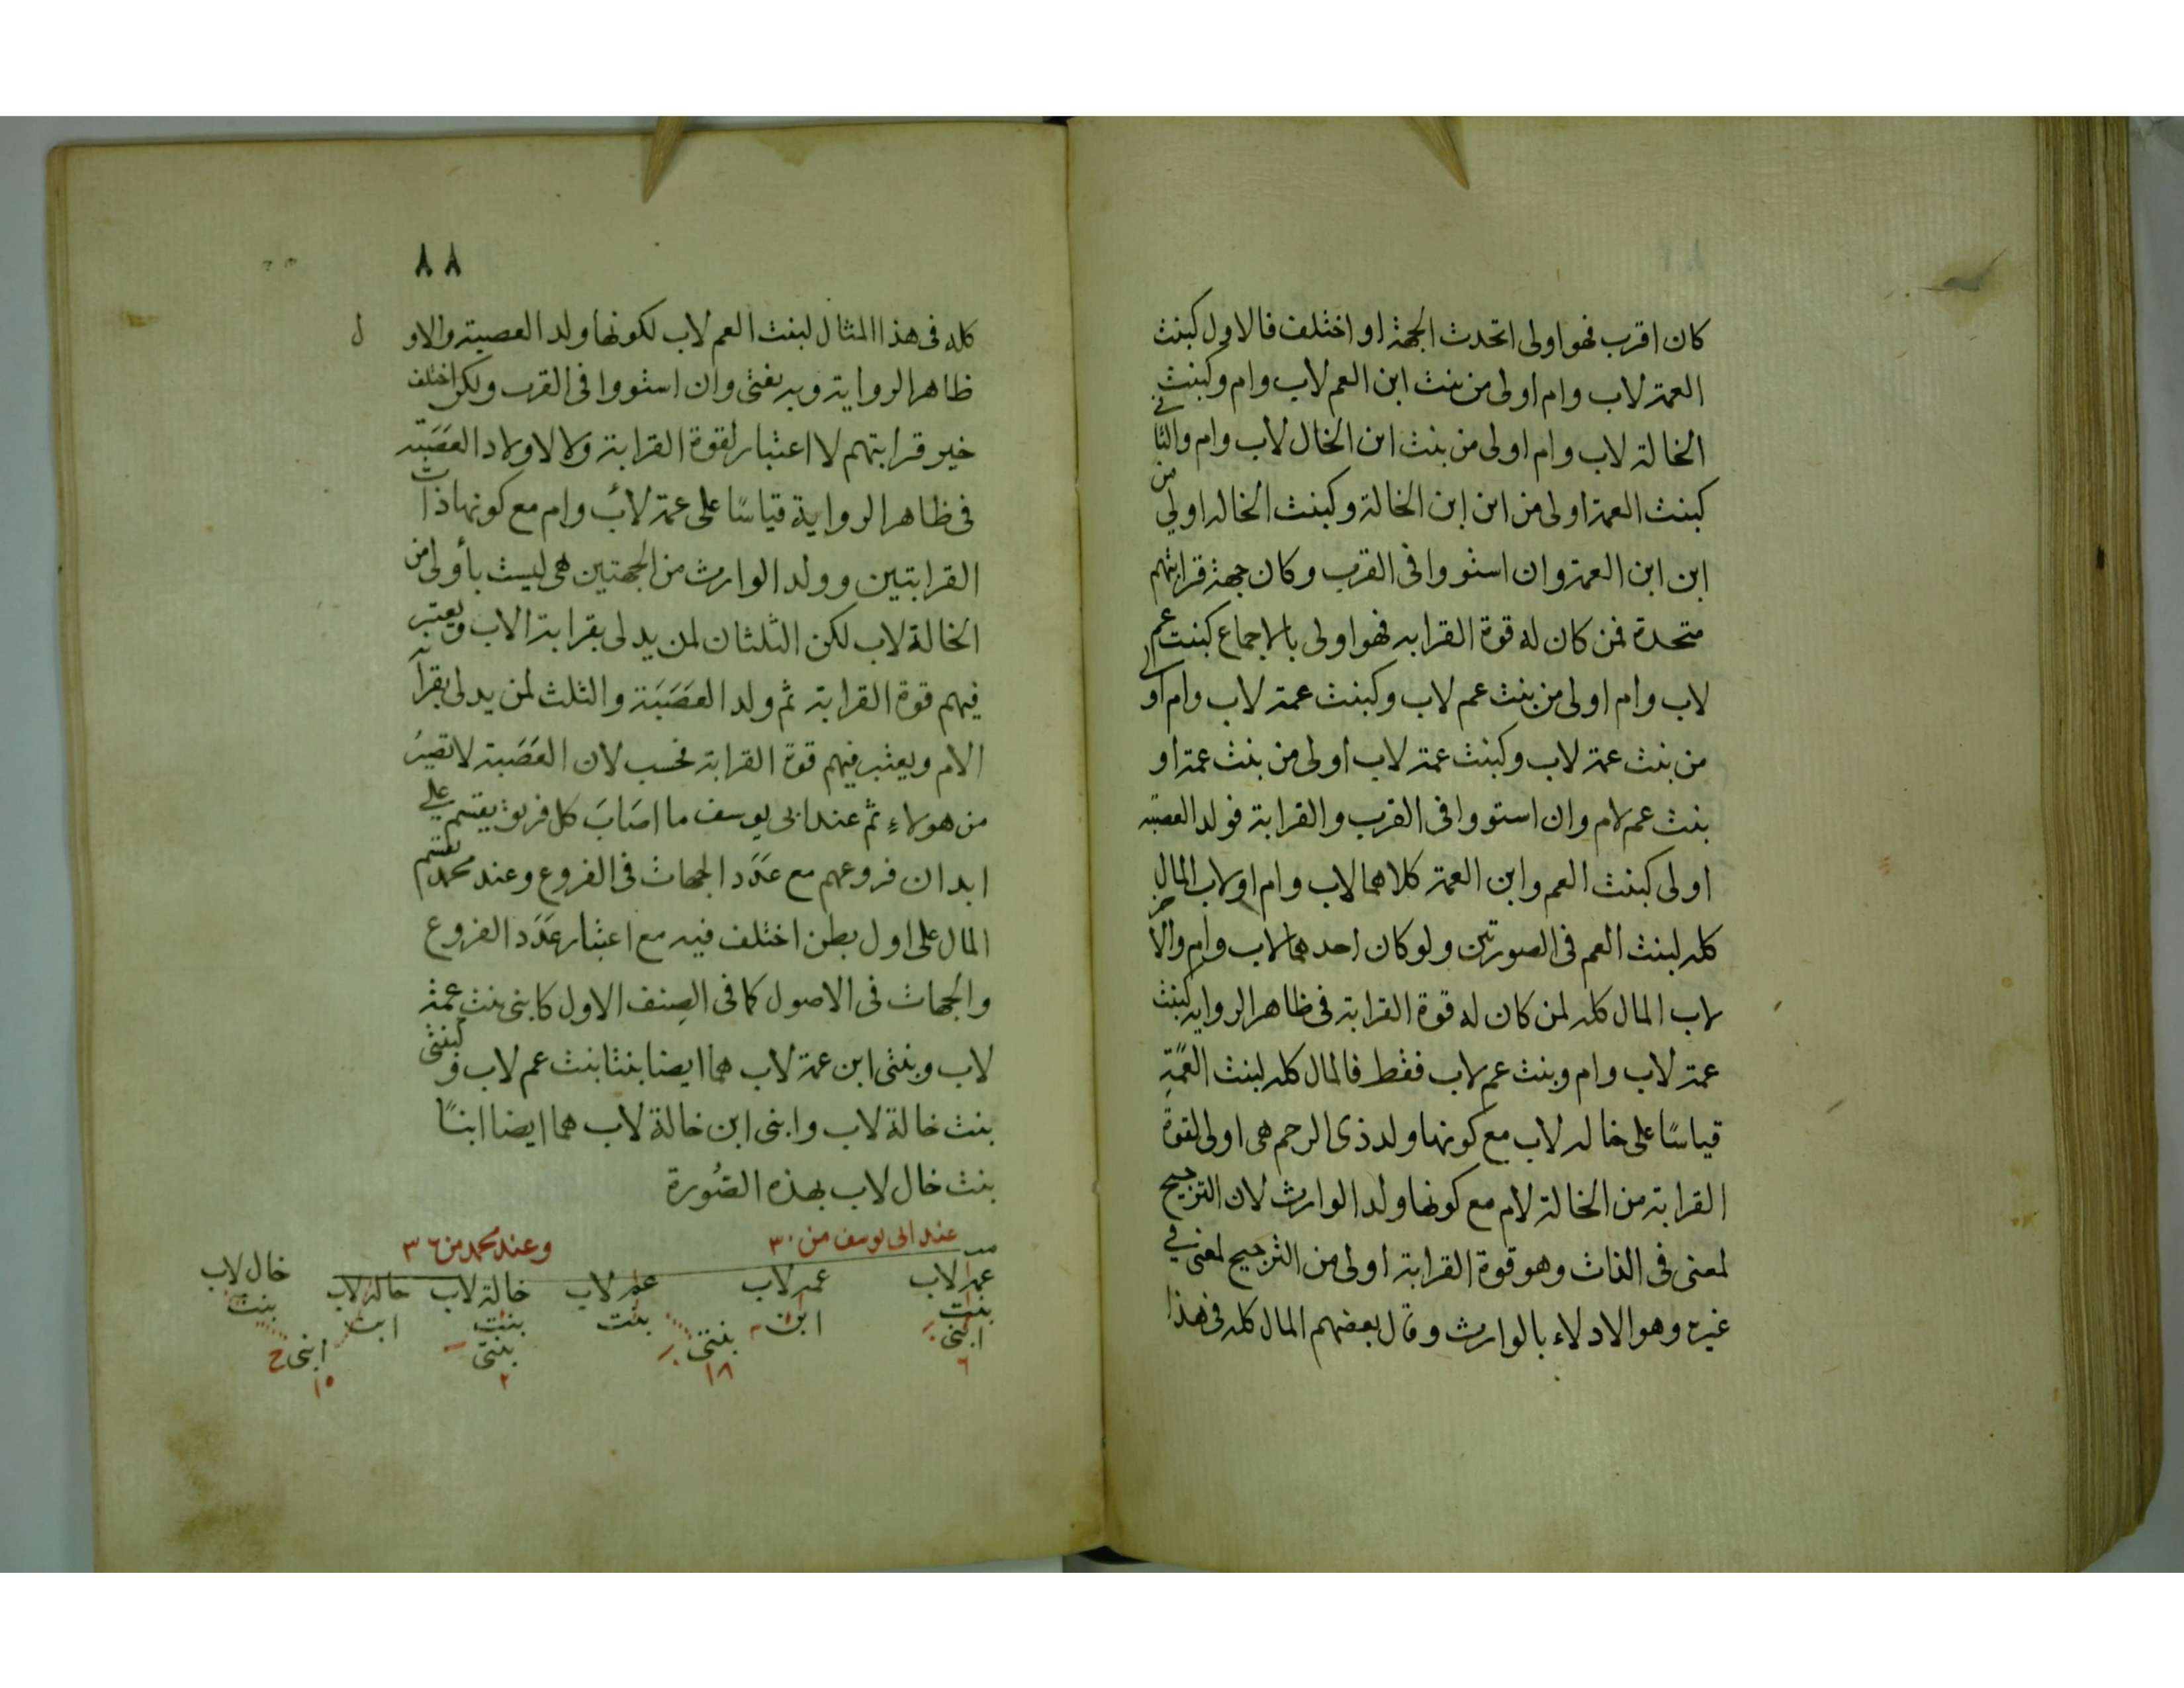 كان اقرب فهو اولى اتحدت الجهة او اختلف فالاول كبنت
العمة لاب وام اولى من بنت ابن العم لاب وام وكبنت
الخالة لاب وام اولى من بنت ابن الخال لاب وام والثانى
كبنت العمة اولى من ابن ابن الخالة وكبنت الخاله اولى من
ابن ابن العمة وان استووا فى القرب وكان جهة قرابتهم
متحدة فمن كان له قوة القرابه فهو اولى بالاجماع كبنت عم
لاب وام اولى من بنت عم لاب وكبنت عمة لاب وام اولى
من بنت عمة لاب وكبنت عمة لاب اولى من بنت عمة او
بنت عم لام وان استووا فى القرب والقرابة فولد العصبه
اولى كبنت العم وابن العمة كلاهما لاب وام او لاب المال
كله لبنت العم فى الصورتين ولو كان احدهما لاب وام والاخر
لاب المال كله لمن كان له قوة القرابة فى ظاهر الروايه كبنت
عمة لاب وام وبنت عم لاب فقط فالمال كله لبنت العمَّةِ
قياسًا على خاله لاب مع كونها ولد ذى الرحم هى اولى لقوة
القرابة من الخالة لام مع كونها ولد الوارث لان الترجيح
لمعنى فى الذات وهو قوة القرابة اولى من الترجيح لمعنى فى
غيره وهو الادلاء بالوارث وقال بعضهم المال كله فى هذا
٨٨
كله فى هذا المثال لبنت العم لاب لكونها ولد العصبة والاول
ظاهر الرواية وبه يفتى وان استووا فى القرب ولكن اختلف
حيز قرابتهم لا اعتبار لقوة القرابة ولا لاولاد العَصَبَة
فى ظاهر الرواية قياسًا على عمة لأب وام مع كونها ذات
القرابتين وولد الوارث من الجهتين هى ليست بأولى من
الخالة لاب لكن الثلثان لمن يدلى بقرابة الاب ويعتبر
فيهم قوة القرابة ثم ولد العَصَبَة والثلث لمن يدلى بقرابة
الام ويعتبر فيهم قوة القرابة فحسب لان العَصَبة لا تصيرُ
من هولاءِ ثم عند ابى يوسف ما اصَابَ كل فريق يقسم على
ابدان فروعهم مع عَدَد الجهات فى الفروع وعند محمد يقسم
المال على اول بطن اختلف فيه مع اعتبار عَدَد الفروع
والجهات فى الاصول كما فى الصِنف الاول كابنى بنت عمة
لاب وبنتى ابن عمة لاب هما ايضا بنتا بنت عم لاب وكبنتى
بنت خالة لاب وابنى ابن خالة لاب هما ايضا ابنا
بنت خال لاب بهذه الصُورة
عند ابى يوسف من ٣٠ وعند محمد من ٣٦
عمة لاب عمه لاب عم لاب خالة لاب خالة لاب خال لاب
بنت ابن بنت بنت ابن بنت
ابنى بنتى بنتى ابنى
٦ ١٨ ٢ ١٠